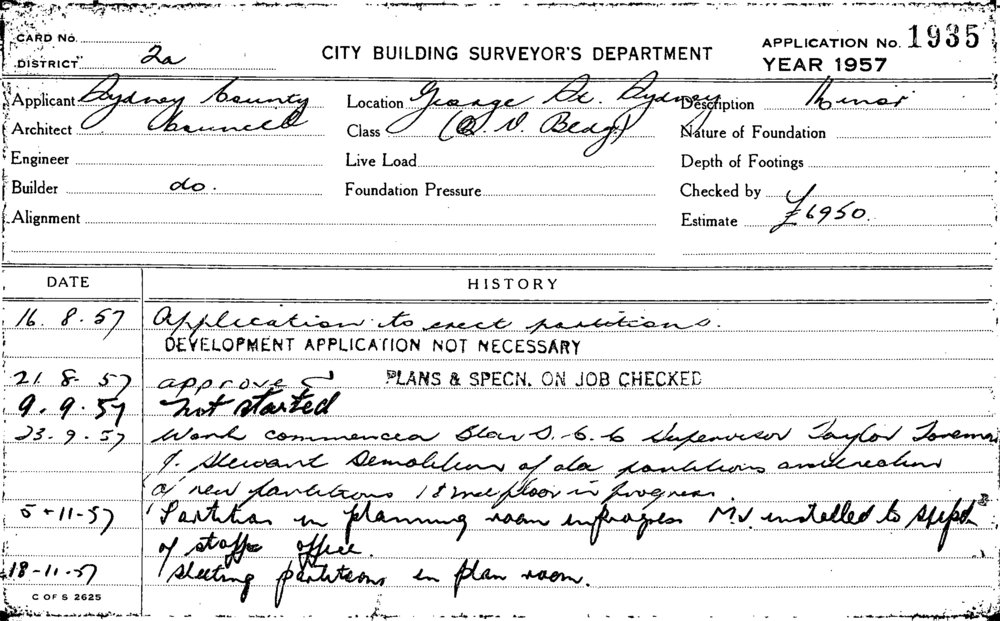 CARD No.
DISTRICT 2a
CITY BUILDING SURVEYOR'S DEPARTMENT
APPLICATION No. 1935
YEAR 1957
Applicant Sydney County
Location George St. Sydney
Description Minor
Architect Council
Class (Q.V. Bldg)
Nature of Foundation
Engineer
Live Load
Depth of Footings
Builder do.
Foundation Pressure
Checked by
Alignment
Estimate £6950.
DATE
HISTORY
16. 8. 57 Application to erect partitions.
DEVELOPMENT APPLICATION NOT NECESSARY
21. 8. 57 approved PLANS & SPECN. ON JOB CHECKED
9. 9. 57 Not started
23. 9. 57 Work commenced S.C.C Supervisor Taylor Foreman
J. Stewart Demolition of old partitions and erection
of new partitions 1st & 2nd floor in progress.
5-11-57 Partition in planning room in progress M.V. installed to
of staff office.
18-11-57 Sheeting partitions in plan room.
C OF S 2625